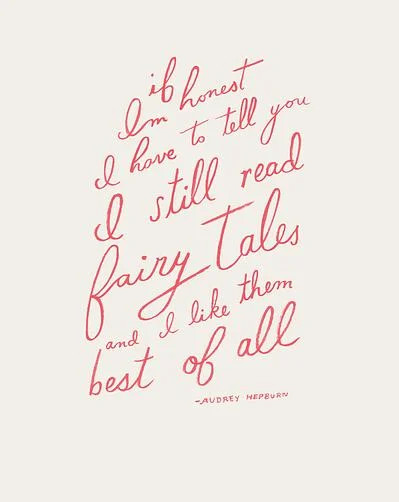 if
Im honest
I have to tell you
I still read
fairy Tales
and I like them
best of all
-AUDREY HEPBURN